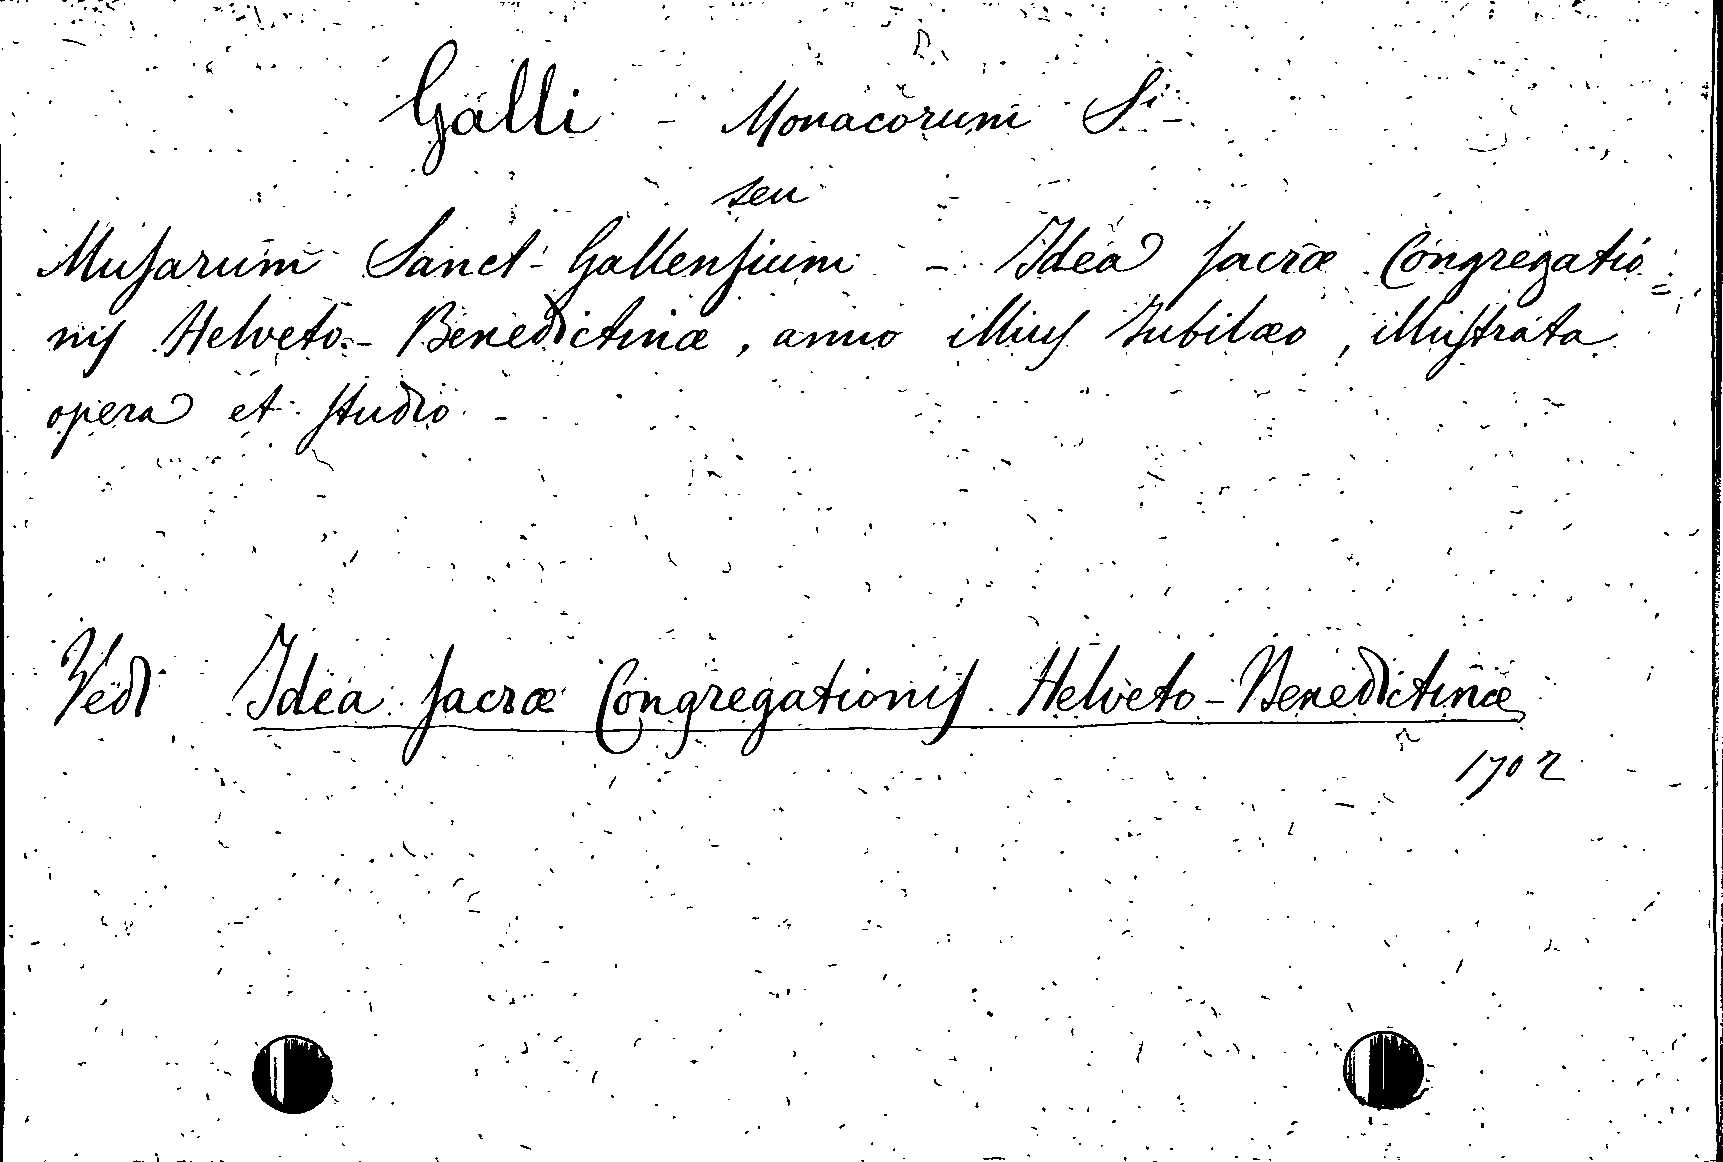 Galli - Monacorum Si
seu
Musarum Sanct- Gallensium - Idea sacræ Congregatio=
nis Helveto-Benedictinæ, anno illius Jubilæo, illustrata
opera et studio -
Vedi Idea sacræ Congregationis Helveto-Benedictinæ
1702